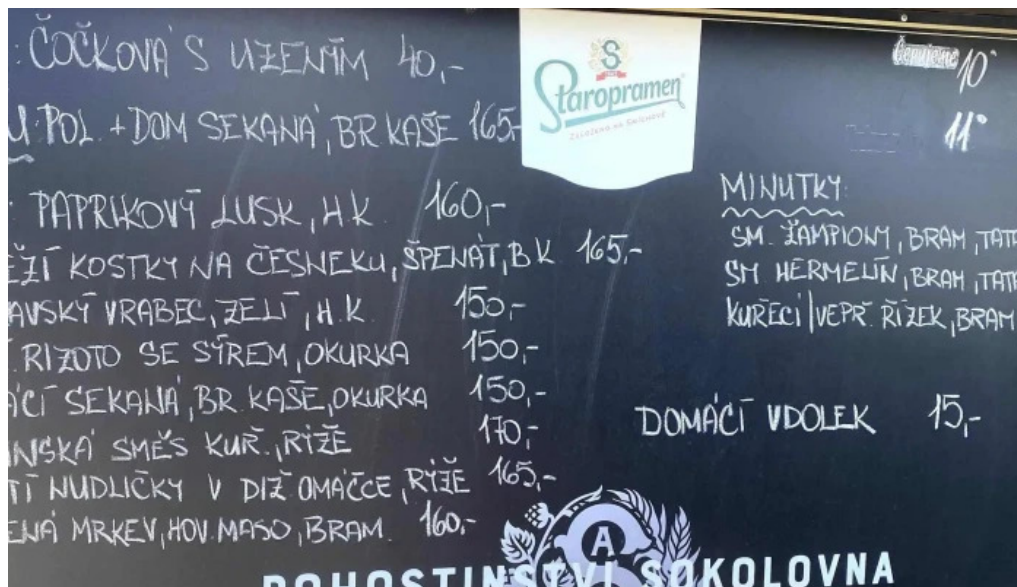 : ČOČKOVÁ S UZENÍM 40,-
U: POL. + DOM SEKANÁ, BR. KAŠE 165,-
: PAPRIKOVÝ LUSK, H.K. 160,-
EŽÍ KOSTKY NA ČESNEKU, ŠPENÁT, B.K 165,-
AVSKÝ VRABEC, ZELÍ, H.K. 150,-
. RIZOTO SE SÝREM, OKURKA 150,-
ÁCÍ SEKANÁ, BR. KAŠE, OKURKA 150,-
NSKÁ SMĚS KUŘ., RÝŽE 170,-
TÍ NUDLIČKY V DIŽ. OMÁČCE, RÝŽE 165,-
ENÁ MRKEV, HOV. MASO, BRAM. 160,-
S
Staropramen
Založeno na Smíchově
Čepujeme 10°
11°
MINUTKY:
SM. ŽAMPIONY, BRAM, TATA
SM HERMELÍN, BRAM, TATA
KUŘECÍ | VEPŘ. ŘÍZEK, BRAM
DOMÁCÍ VDOLEK 15,-
A
POHOSTINSTVÍ SOKOLOVNA